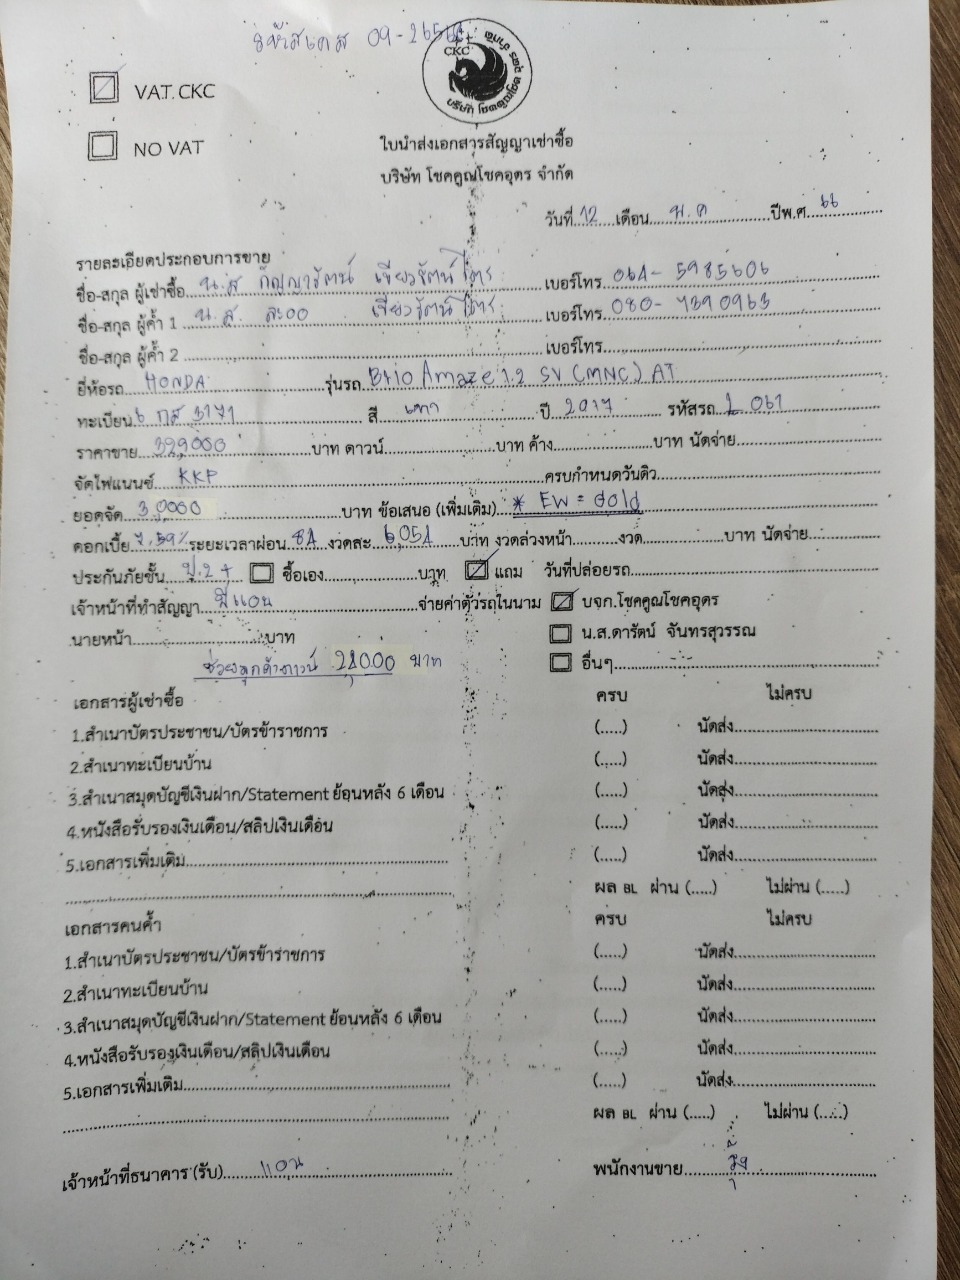 รหัสเคส 09-2656
CKC
บริษัท โชคคูณโชคอุดร จำกัด
VAT. CKC
NO VAT
ใบนำส่งเอกสารสัญญาเช่าซื้อ
บริษัท โชคคูณโชคอุดร จำกัด
วันที่ 12 เดือน พ.ค ปีพ.ศ. 66
รายละเอียดประกอบการขาย
ชื่อ-สกุล ผู้เช่าซื้อ น.ส กัญญารัตน์ เขียวรัตน์ไตร เบอร์โทร 064-5985606
ชื่อ-สกุล ผู้ค้ำ 1 น.ส. ละออ เขียวรัตน์ไตร เบอร์โทร 080-7390963
ชื่อ-สกุล ผู้ค้ำ 2 เบอร์โทร
ยี่ห้อรถ HONDA รุ่นรถ Brio Amaze 1.2 SV (MNC) AT
ทะเบียน 6 กส 3171 สี เทา ปี 2017 รหัสรถ L 061
ราคาขาย 329,000 บาท ดาวน์ บาท ค้าง บาท นัดจ่าย
จัดไฟแนนซ์ KKP ครบกำหนดวันดิว
ยอดจัด บาท ข้อเสนอ (เพิ่มเติม) * EW = Gold
ดอกเบี้ย 7.59% ระยะเวลาผ่อน 84 งวดละ 6,054 บาท งวดล่วงหน้า งวด บาท นัดจ่าย
ประกันภัยชั้น ป.2+ ซื้อเอง บาท แถม วันที่ปล่อยรถ
เจ้าหน้าที่ทำสัญญา พี่แอน จ่ายค่าตัวรถในนาม บจก.โชคคูณโชคอุดร
นายหน้า บาท น.ส.ดารัตน์ จันทรสุวรรณ
ช่วยลูกค้าดาวน์ บาท อื่นๆ
เอกสารผู้เช่าซื้อ ครบ ไม่ครบ
1.สำเนาบัตรประชาชน/บัตรข้าราชการ (.....) นัดส่ง
2.สำเนาทะเบียนบ้าน (.....) นัดส่ง
3.สำเนาสมุดบัญชีเงินฝาก/Statement ย้อนหลัง 6 เดือน (.....) นัดส่ง
4.หนังสือรับรองเงินเดือน/สลิปเงินเดือน (.....) นัดส่ง
5.เอกสารเพิ่มเติม (.....) นัดส่ง
ผล BL ผ่าน (.....) ไม่ผ่าน (.....)
เอกสารคนค้ำ ครบ ไม่ครบ
1.สำเนาบัตรประชาชน/บัตรข้าราชการ (.....) นัดส่ง
2.สำเนาทะเบียนบ้าน (.....) นัดส่ง
3.สำเนาสมุดบัญชีเงินฝาก/Statement ย้อนหลัง 6 เดือน (.....) นัดส่ง
4.หนังสือรับรองเงินเดือน/สลิปเงินเดือน (.....) นัดส่ง
5.เอกสารเพิ่มเติม (.....) นัดส่ง
ผล BL ผ่าน (.....) ไม่ผ่าน (.....)
เจ้าหน้าที่ธนาคาร (รับ) แอน พนักงานขาย